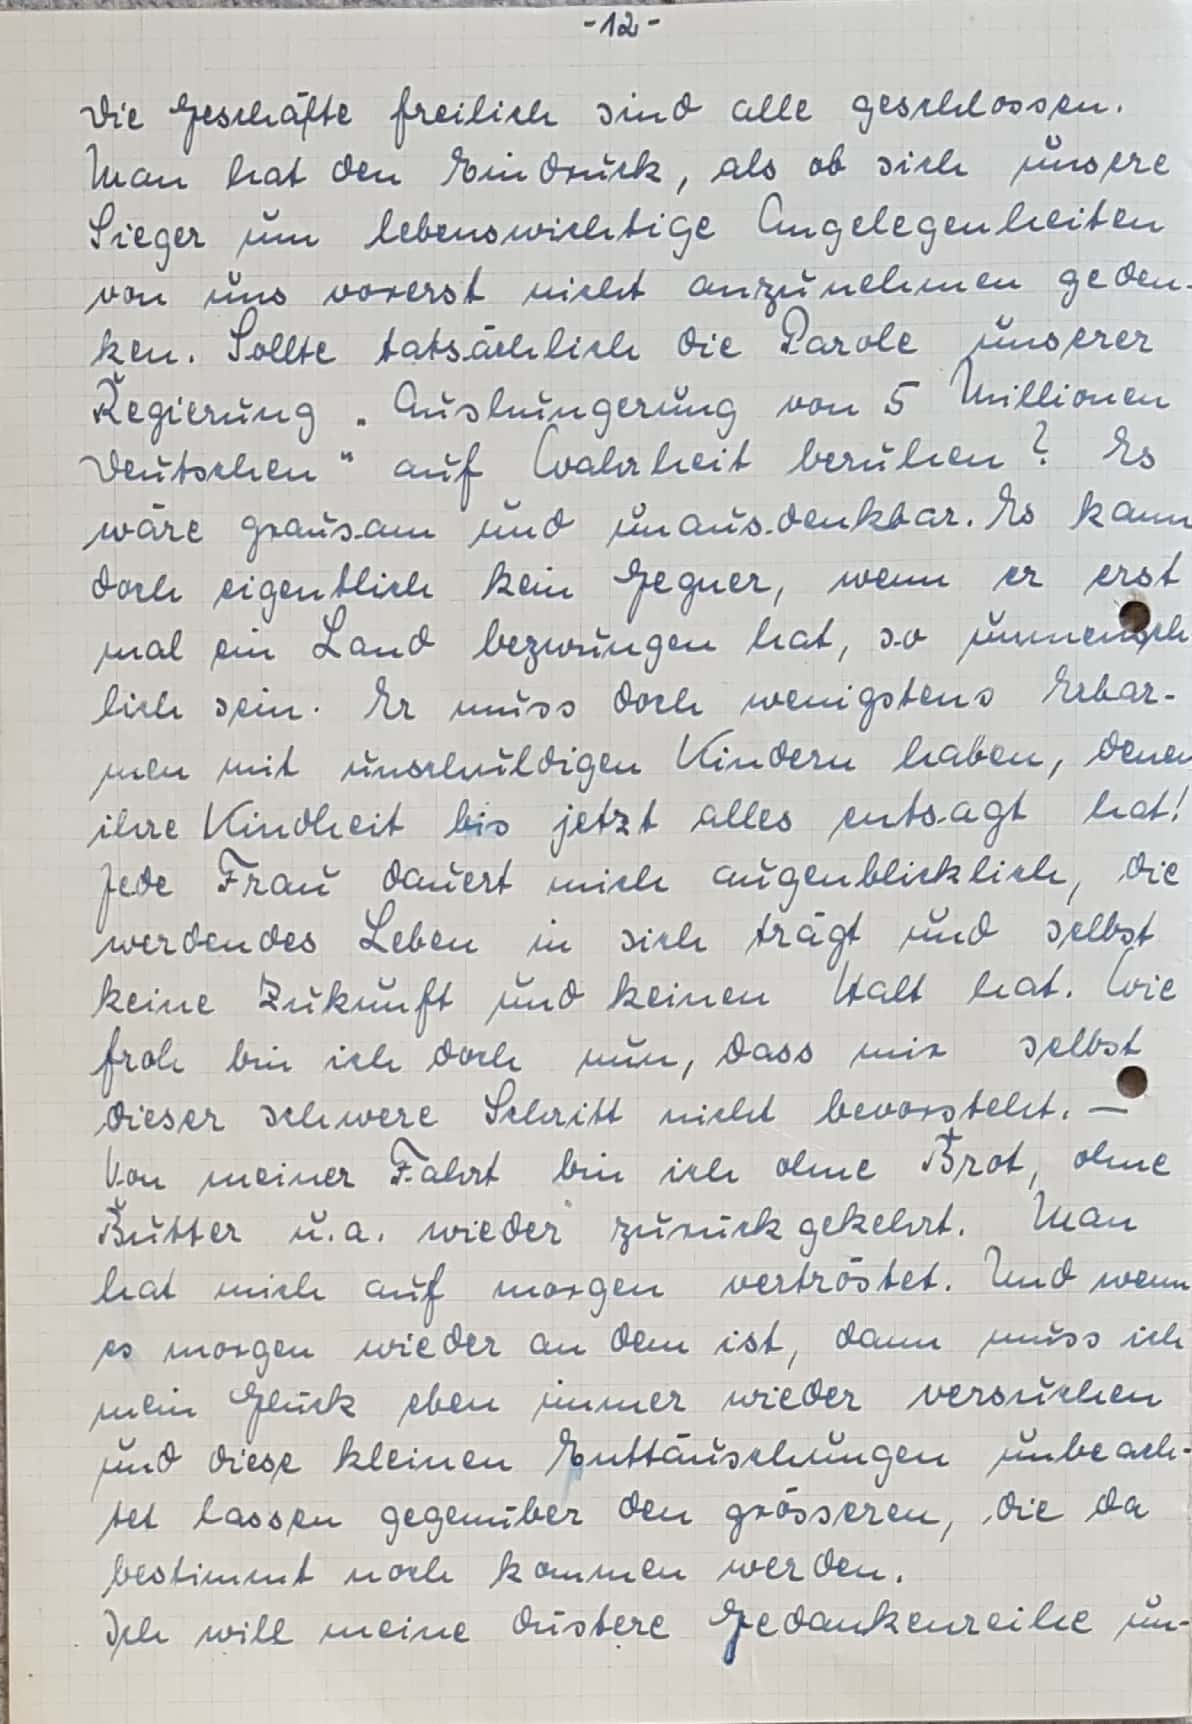 -12-
Die Geschäfte freilich sind alle geschlossen.
Man hat den Eindruck, als ob sich unsere
Sieger um lebenswichtige Angelegenheiten
von uns vorerst nicht anzunehmen geden-
ken. Sollte tatsächlich die Parole unserer
Regierung „Aushungerung von 5 Millionen
Deutschen" auf Wahrheit beruhen? Es
wäre grausam und unausdenkbar. Es kann
doch eigentlich kein Gegner, wenn er erst
mal ein Land bezwungen hat, so unmensch
lich sein. Er muss doch wenigstens Erbar-
men mit unschuldigen Kindern haben, denen
ihre Kindheit bis jetzt alles entsagt hat!
Jede Frau dauert mich augenblicklich, die
werdendes Leben in sich trägt und selbst
keine Zukunft und keinen Halt hat. Wie
froh bin ich doch nun, dass mir selbst
dieser schwere Schritt nicht bevorsteht. —
Von meiner Fahrt bin ich ohne Brot, ohne
Butter u.a. wieder zurückgekehrt. Man
hat mich auf morgen vertröstet. Und wenn
es morgen wieder an dem ist, dann muss ich
mein Glück eben immer wieder versuchen
und diese kleinen Enttäuschungen unbeach-
tet lassen gegenüber den grösseren, die da
bestimmt noch kommen werden.
Ich will meine düstere Gedankenreihe un-